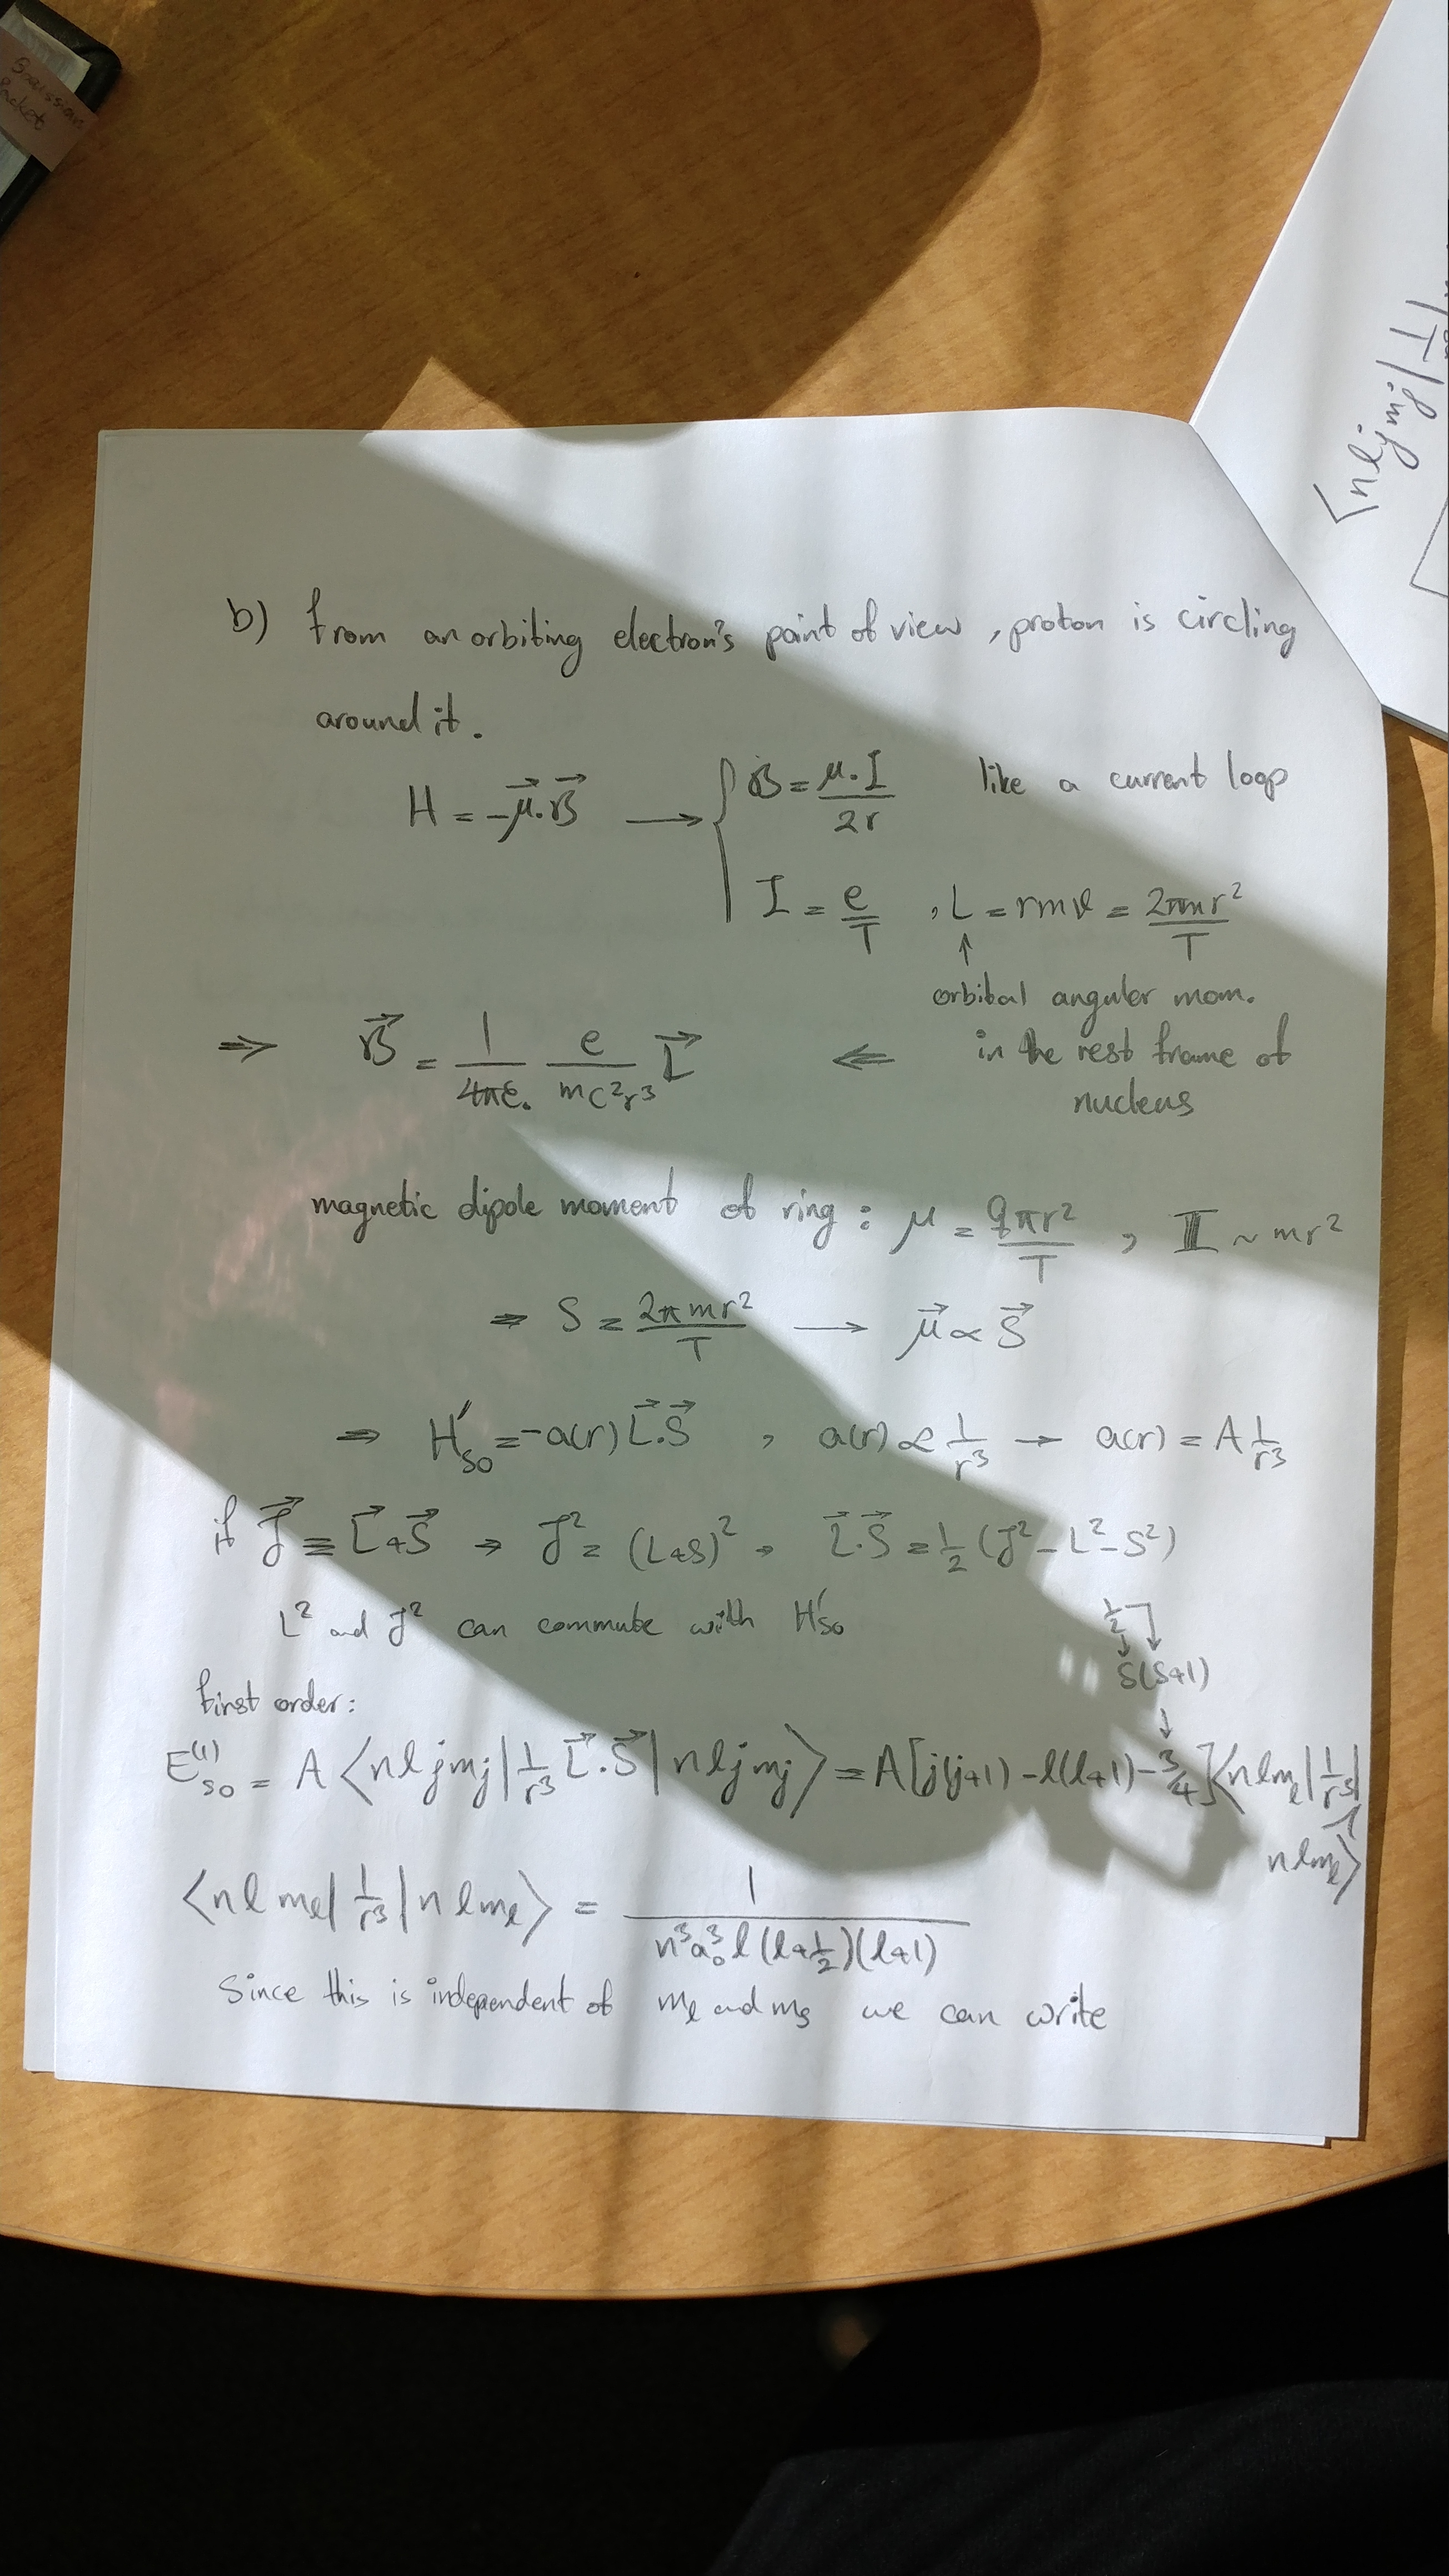 b) from an orbiting electron's point of view, proton is circling
around it. like a current loop
H = -μ⃗.B⃗ ⟶ { B⃗ = μ₀I / 2r
I = e/T , L = rmv = 2πmr²/T
↑
orbital angular mom.
in the rest frame of
nucleus
⇒ B⃗ = 1/4πε₀ e/mc²r³ L⃗ ⇐
magnetic dipole moment of ring : μ = qπr²/T , I ~ mr²
⇒ S = 2πmr²/T ⟶ μ⃗ ∝ S⃗
⇒ H'so = -a(r) L⃗.S⃗ , a(r) ∝ 1/r³ → a(r) = A 1/r³
if J⃗ ≡ L⃗+S⃗ → J² = (L+S)² → L⃗.S⃗ = ½ (J² - L² - S²)
L² and J² can commute with H'so
½↓]↓
S(S+1)
first order:
E⁽¹⁾so = A⟨nljmj|1/r³ L⃗.S⃗|nljmj⟩ = A[j(j+1) - l(l+1) - 3/4]⟨nlml|1/r³|
nlml⟩
⟨nlml|1/r³|nlml⟩ = 1 / n³a₀³l(l+½)(l+1)
Since this is independent of ml and ms we can write
⟨nljmj|1/